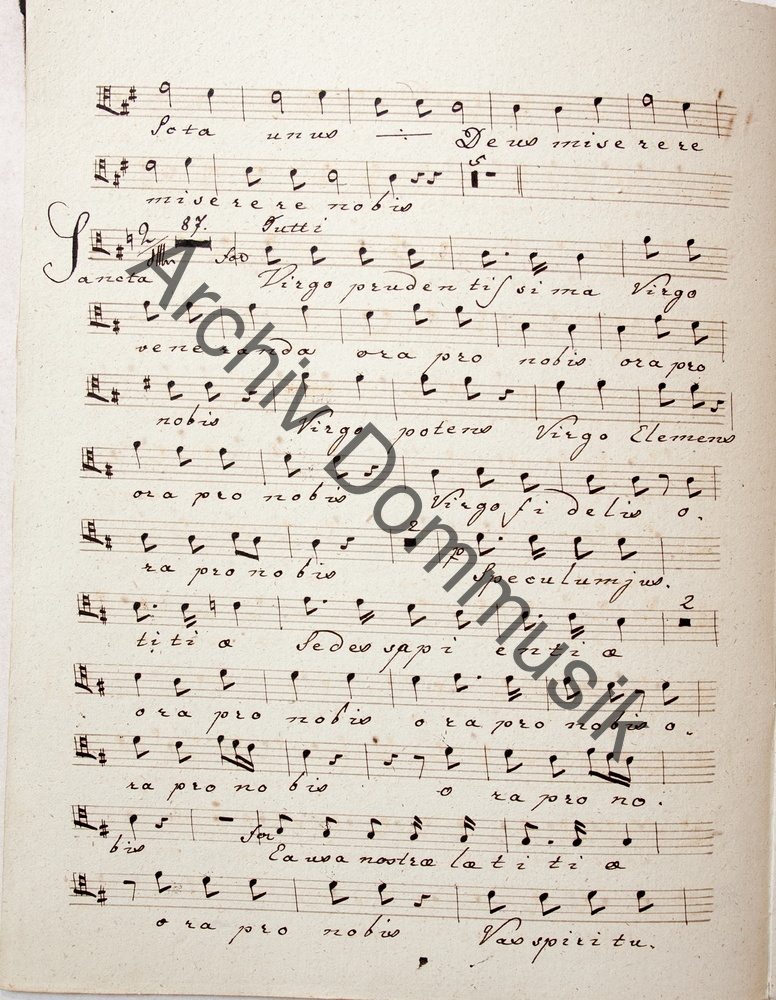 Sota unus ÷ Deus miserere
miserere nobis
2 87. Tutti
Sancta for Virgo prudentissima Virgo
veneranda ora pro nobis ora pro
nobis Virgo potens Virgo Clemens
ora pro nobis Virgo fidelis o.
2 p
ra pro nobis Speculum jus.
2
titiæ Sedes sapientiæ
ora pro nobis ora pro nobis o.
ra pro nobis o ra pro no.
for
bis Causa nostræ lætitiæ
ora pro nobis Vas spiritu.
Archiv Dommusik